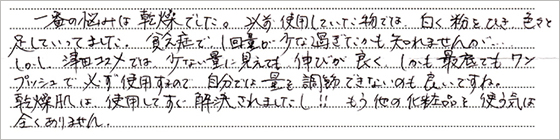 一番の悩みは乾燥でした。必ず使用していた粉では、白く粉をひき 色々と
足していってました。貧乏症で1回量が少な過ぎたかも知れませんが…
しかし、津田コスメでは、少ない量に見えても伸びが良く、しかも最底でもワン
プッシュで必ず使用するので自分では量を調節できないのも良いですね。
乾燥肌は、使用してすぐ解決されました!! もう他の化粧品を使う気は
全くありません。